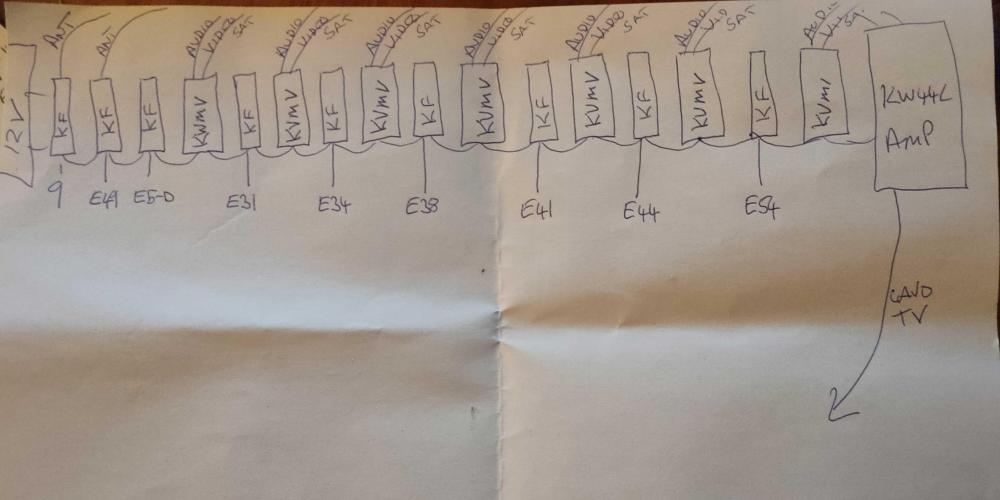 ANT
ANT
AUDIO
VIDEO
SAT
AUDIO
VIDEO
SAT
AUDIO
VIDEO
SAT
AUDIO
VIDEO
SAT
AUDIO
VIDEO
SAT
AUDIO
VID
SAT
12V
KF
KF
KF
KVMV
KF
KVMV
KF
KVMV
KF
KVMV
KF
KVMV
KF
KVMV
KF
KVMV
KW44L
AMP
9
E49
E50
E31
E34
E38
E41
E44
E54
CAVO
TV